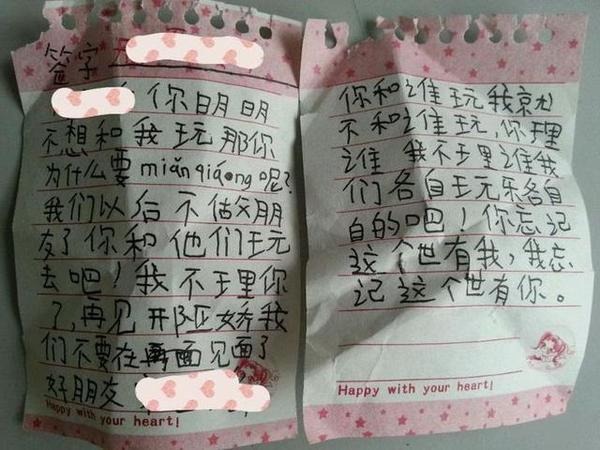 签字
你明明
不想和我玩那你
为什么要miǎnqiáong呢?
我们以后不做朋
友了你和他们玩
去吧！我不理你
了,再见 我
们不要在见面了
好朋友
Happy with your heart!
你和谁玩我就
不和谁玩,你理
谁 我不理谁我
们各自玩乐各自
自的吧！你忘记
这个世有我，我忘
记这个世有你。
Happy with your heart!